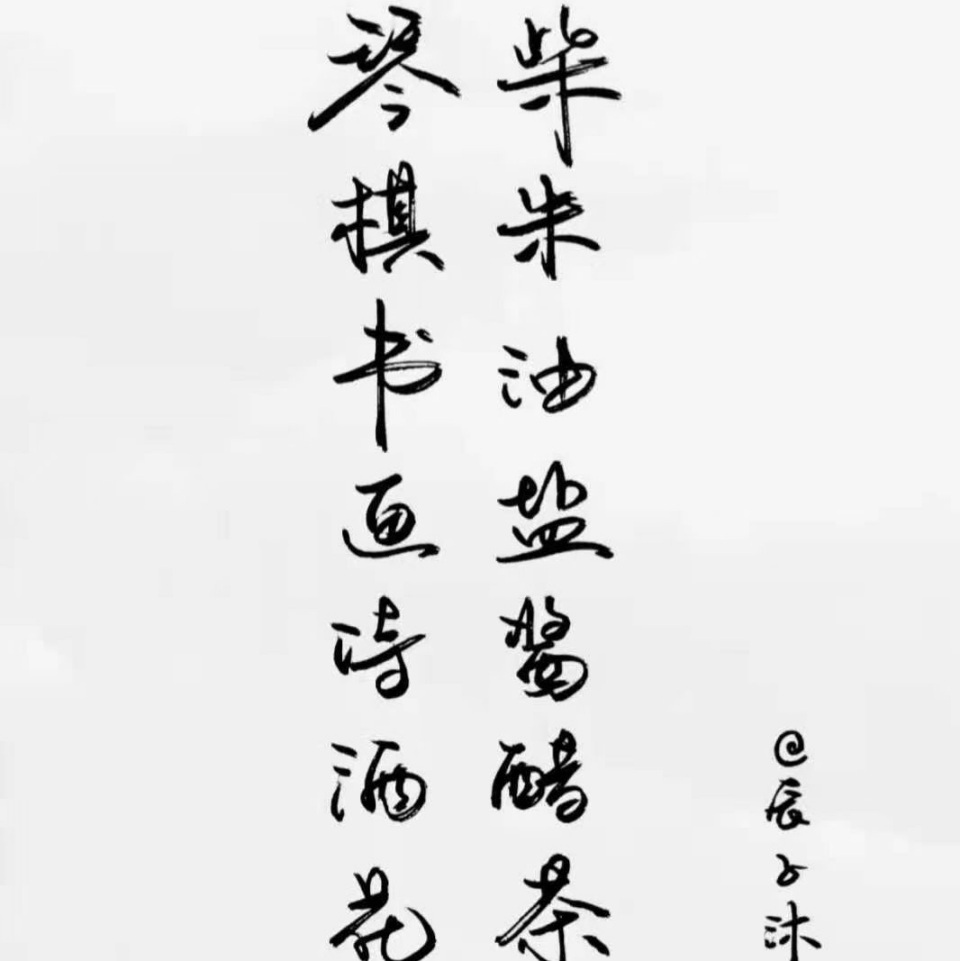 柴米油盐酱醋茶
琴棋书画诗酒花
@辰子沐